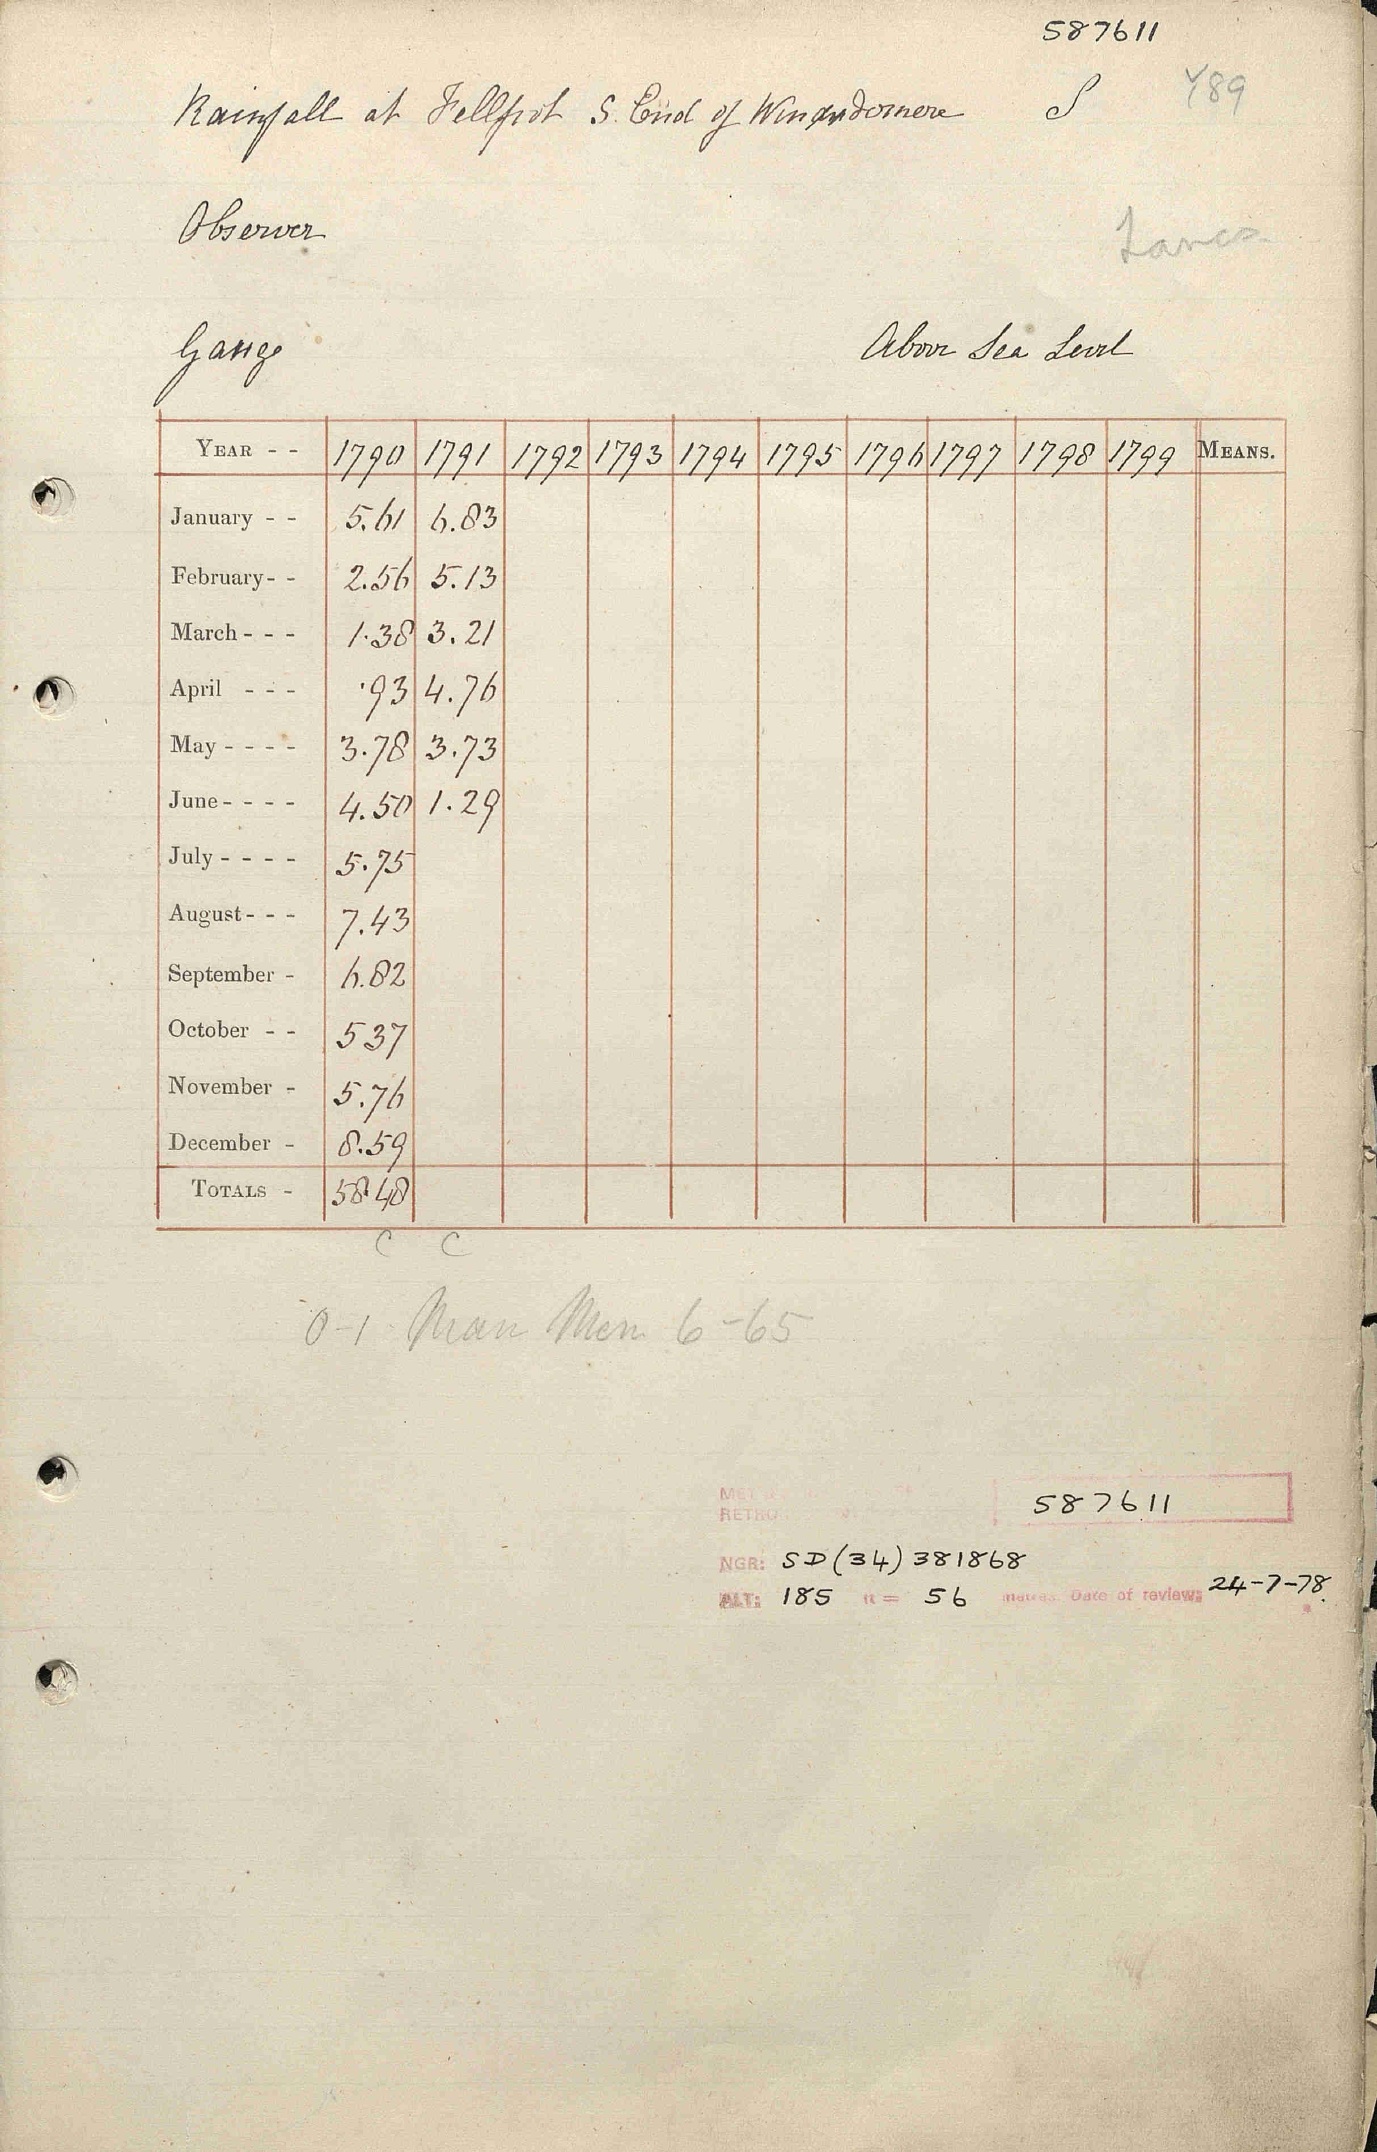 587611
Rainfall at Fellfoot S. End of Winandermere S Y89
Observer
Lancs.
Gauge Above Sea Level
YEAR - - 1790 1791 1792 1793 1794 1795 1796 1797 1798 1799 MEANS.
January - - 5.61 6.83
February - - 2.56 5.13
March - - - 1.38 3.21
April - - - .93 4.76
May - - - - 3.78 3.73
June - - - - 4.50 1.29
July - - - - 5.75
August - - - 7.43
September - 6.82
October - - 5 37
November - 5.76
December - 8.59
TOTALS - 58.48
C C
0-1 Man Mem 6-65
MET
RETRO 587611
NGR: SD (34) 381868
ALT: 185 ft = 56 metres. Date of review: 24-7-78.